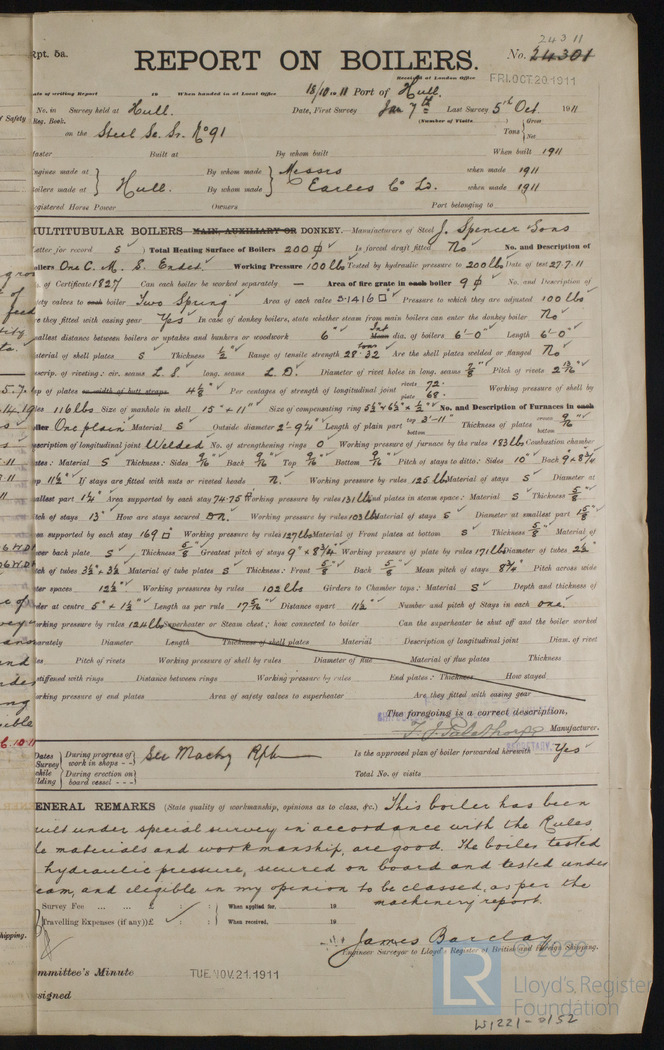 24311
Rpt. 5a. REPORT ON BOILERS. No. 24301
Received at London Office FRI. OCT. 20 1911
Date of writing Report 19 When handed in at Local Office 18/10/11 Port of Hull.
No. in Survey held at Hull. Date, First Survey Jan 7th Last Survey 5th Oct. 1911
Reg. Book. (Number of Visits )
on the Steel Sc. Sr. No 91 Tons { Gross Net
Master Built at By whom built When built 1911
Engines made at Hull. By whom made Messrs when made 1911
Boilers made at By whom made Earles Co Ld. when made 1911
Registered Horse Power Owners Port belonging to
MULTITUBULAR BOILERS MAIN, AUXILIARY OR DONKEY. Manufacturers of Steel J. Spencer & Sons
Letter for record S Total Heating Surface of Boilers 200 ϕ Is forced draft fitted No No. and Description of
Boilers One C. M. S. Ended. Working Pressure 100 lbs Tested by hydraulic pressure to 200 lbs Date of test 27.7.11
No. of Certificate 1827 Can each boiler be worked separately — Area of fire grate in each boiler 9 ϕ No. and Description of
safety valves to each boiler Two Spring Area of each valve 3.1416 □ Pressure to which they are adjusted 100 lbs
Are they fitted with easing gear Yes In case of donkey boilers, state whether steam from main boilers can enter the donkey boiler No
Smallest distance between boilers or uptakes and bunkers or woodwork 6" Int Mean dia. of boilers 6'-0" Length 6'-0"
Material of shell plates S Thickness 1/2" Range of tensile strength 28.32 tons Are the shell plates welded or flanged No
Descrip. of riveting: cir. seams L. S. long. seams L. D. Diameter of rivet holes in long. seams 7/8" Pitch of rivets 2 13/16"
Lap of plates or width of butt straps 4 1/8" Per centages of strength of longitudinal joint rivets 72. plate 68. Working pressure of shell by
rules 116 lbs Size of manhole in shell 15" + 11" Size of compensating ring 5 1/2" + 6 1/2" + 1/2" No. and Description of Furnaces in each
boiler One plain Material S Outside diameter 2'-9 1/4" Length of plain part top 3'-11" bottom Thickness of plates crown 9/16" bottom
Description of longitudinal joint Welded No. of strengthening rings 0 Working pressure of furnace by the rules 183 lbs Combustion chamber
plates: Material S Thickness: Sides 9/16" Back 9/16" Top 9/16" Bottom 9/16" Pitch of stays to ditto: Sides 10" Back 9" + 8 3/4"
Top 11 1/2" If stays are fitted with nuts or riveted heads N. Working pressure by rules 125 lbs Material of stays S Diameter at
smallest part 1 1/4" Area supported by each stay 74.75 Working pressure by rules 131 lbs End plates in steam space: Material S Thickness 5/8"
Pitch of stays 13" How are stays secured D.N. Working pressure by rules 103 lbs Material of stays S Diameter at smallest part 15/8"
Area supported by each stay 169 □ Working pressure by rules 127 lbs Material of Front plates at bottom S Thickness 5/8" Material of
Lower back plate S Thickness 5/8" Greatest pitch of stays 9" + 8 3/4" Working pressure of plate by rules 171 lbs Diameter of tubes 2 1/2"
Pitch of tubes 3 1/2" + 3 1/2" Material of tube plates S Thickness: Front 5/8" Back 5/8" Mean pitch of stays 8 3/4" Pitch across wide
water spaces 12 1/2" Working pressures by rules 102 lbs Girders to Chamber tops: Material S Depth and thickness of
girder at centre 5" + 1 1/2" Length as per rule 17 5/16" Distance apart 11 1/2" Number and pitch of Stays in each one.
Working pressure by rules 124 lbs Superheater or Steam chest; how connected to boiler Can the superheater be shut off and the boiler worked
separately Diameter Length Thickness of shell plates Material Description of longitudinal joint Diam. of rivet
holes Pitch of rivets Working pressure of shell by rules Diameter of flue Material of flue plates Thickness
If stiffened with rings Distance between rings Working pressure by rules End plates: Thickness How stayed
Working pressure of end plates Area of safety valves to superheater Are they fitted with easing gear
The foregoing is a correct description,
Manufacturer.
SECRETARY.
Dates of Survey while building { During progress of work in shops - - See Machy Rpt Is the approved plan of boiler forwarded herewith Yes
During erection on board vessel - - - Total No. of visits
GENERAL REMARKS (State quality of workmanship, opinions as to class, &c.) This boiler has been
built under special survey in accordance with the Rules
the materials and workmanship, are good. The boiler tested
by hydraulic pressure, secured on board and tested under
steam, and eligible in my opinion to be classed, as per the
machinery report.
Survey Fee ... ... £ : : When applied for, 19
Travelling Expenses (if any) £ : : When received, 19
James Barclay
Engineer Surveyor to Lloyd's Register of British and Foreign Shipping.
Committee's Minute TUE. NOV. 21. 1911
Assigned
© 2020
LR
Lloyd's Register
Foundation
W1221-0152